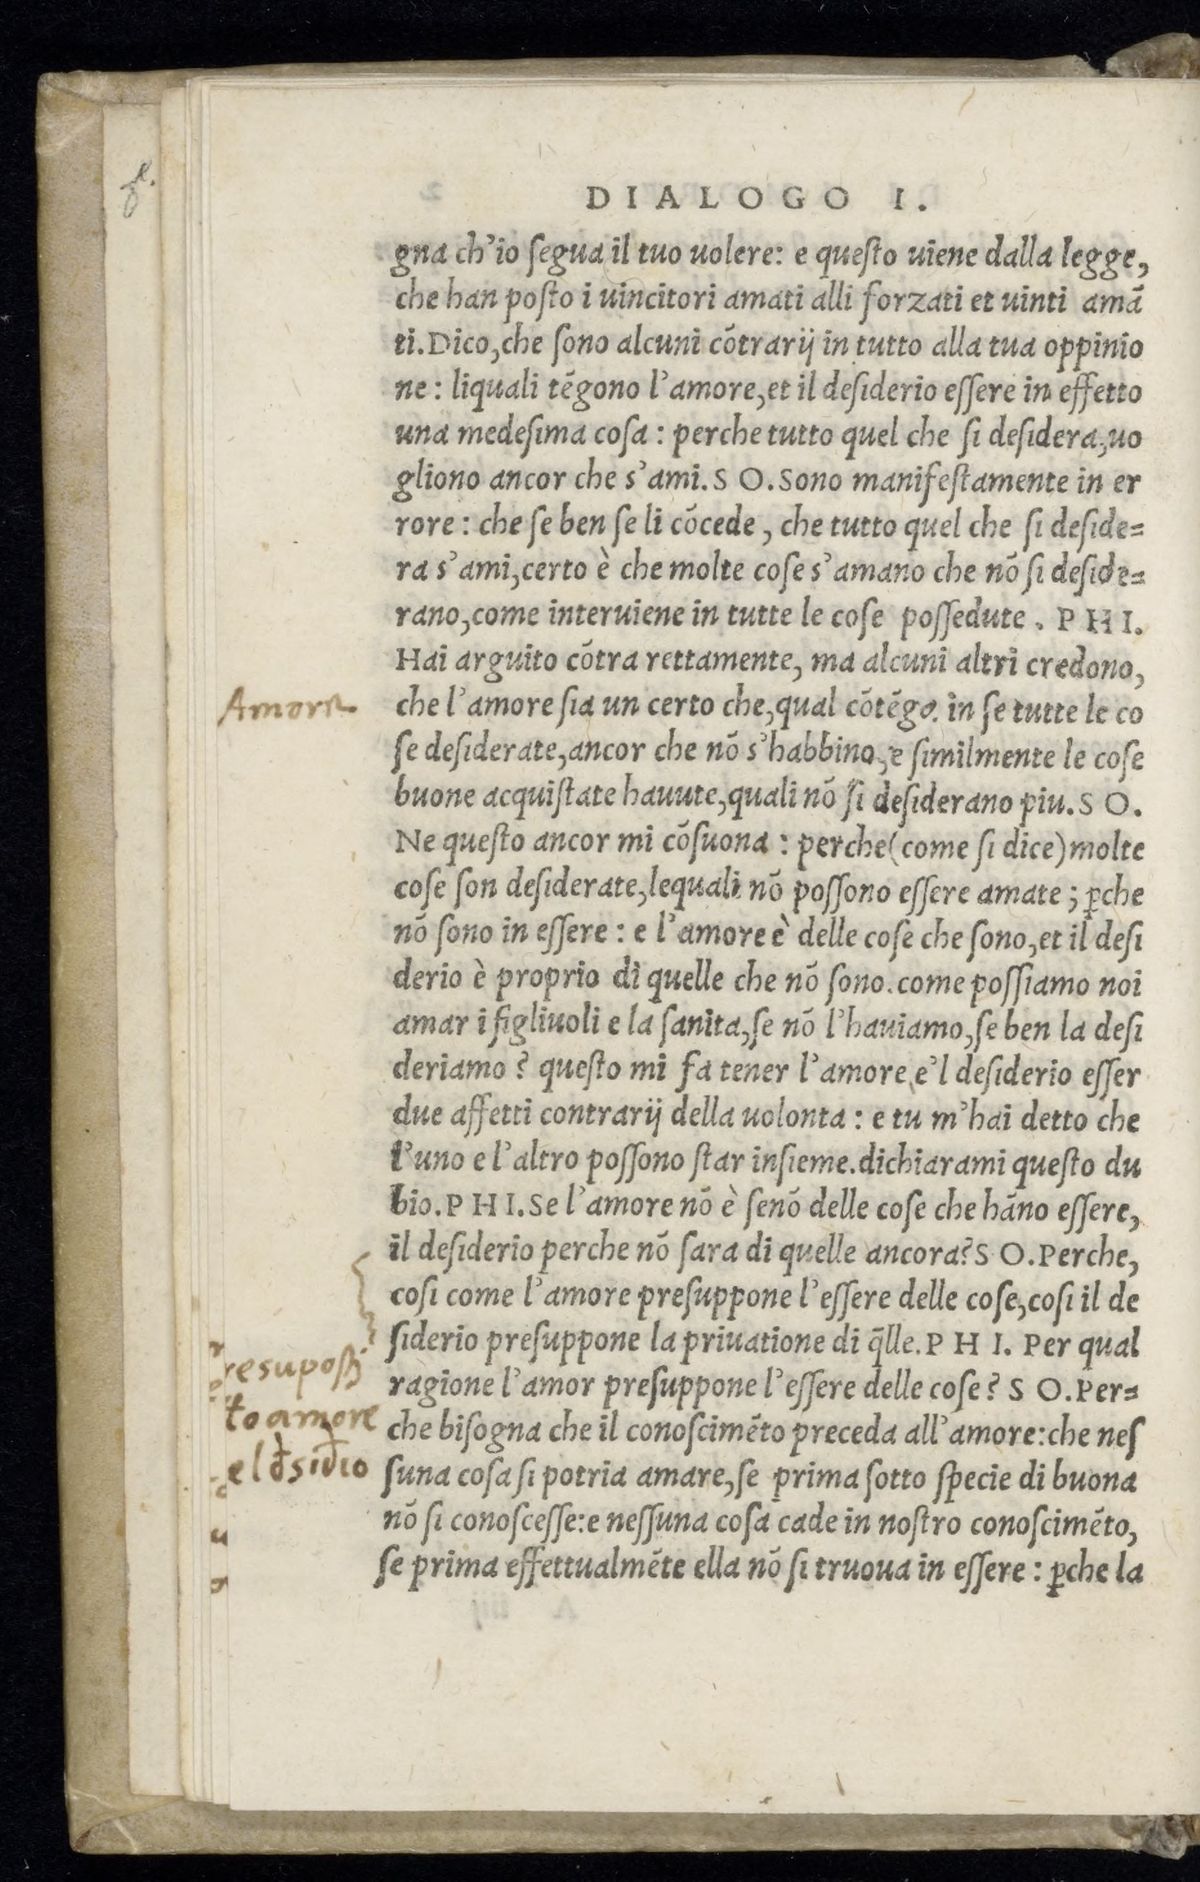 DIALOGO I.
gna ch'io ſegua il tuo uolere: e queſto uiene dalla legge,
che han poſto i uincitori amati alli forzati et uinti amā
ti. Dico, che ſono alcuni cōtrarij in tutto alla tua oppinio
ne: liquali tēgono l'amore, et il deſiderio eſſere in effetto
una medeſima coſa: perche tutto quel che ſi deſidera, uo
gliono ancor che s'ami. S O. Sono manifeſtamente in er
rore: che ſe ben ſe li cōcede, che tutto quel che ſi deſide=
ra s'ami, certo è che molte coſe s'amano che nō ſi deſide=
rano, come interuiene in tutte le coſe poſſedute. P H I.
Hai arguito cōtra rettamente, ma alcuni altri credono,
Amore
che l'amore ſia un certo che, qual cōtēga in ſe tutte le co
ſe deſiderate, ancor che nō s'habbino, e ſimilmente le coſe
buone acquiſtate hauute, quali nō ſi deſiderano piu. S O.
Ne queſto ancor mi cōſuona: perche (come ſi dice) molte
coſe ſon deſiderate, lequali nō poſſono eſſere amate; ꝑche
nō ſono in eſſere: e l'amore è delle coſe che ſono, et il deſi
derio è proprio di quelle che nō ſono. come poſſiamo noi
amar i figliuoli e la ſanita, ſe nō l'hauiamo, ſe ben la deſi
deriamo? queſto mi fa tener l'amore e'l deſiderio eſſer
due affetti contrarij della uolonta: e tu m'hai detto che
l'uno e l'altro poſſono ſtar inſieme. dichiarami queſto du
bio. P H I. Se l'amore nō è ſenō delle coſe che hāno eſſere,
il deſiderio perche nō ſara di quelle ancora? S O. Perche,
coſi come l'amore preſuppone l'eſſere delle coſe, coſi il de
ſiderio preſuppone la priuatione di q̄lle. P H I. Per qual
resuposi
ragione l'amor preſuppone l'eſſere delle coſe? S O. Per=
to amore
che biſogna che il conoſcimēto preceda all'amore: che neſ
el
ſuna coſa ſi potria amare, ſe prima ſotto ſpecie di buona
nō ſi conoſceſſe: e neſſuna coſa cade in noſtro conoſcimēto,
ſe prima effettualmēte ella nō ſi truoua in eſſere: ꝑche la